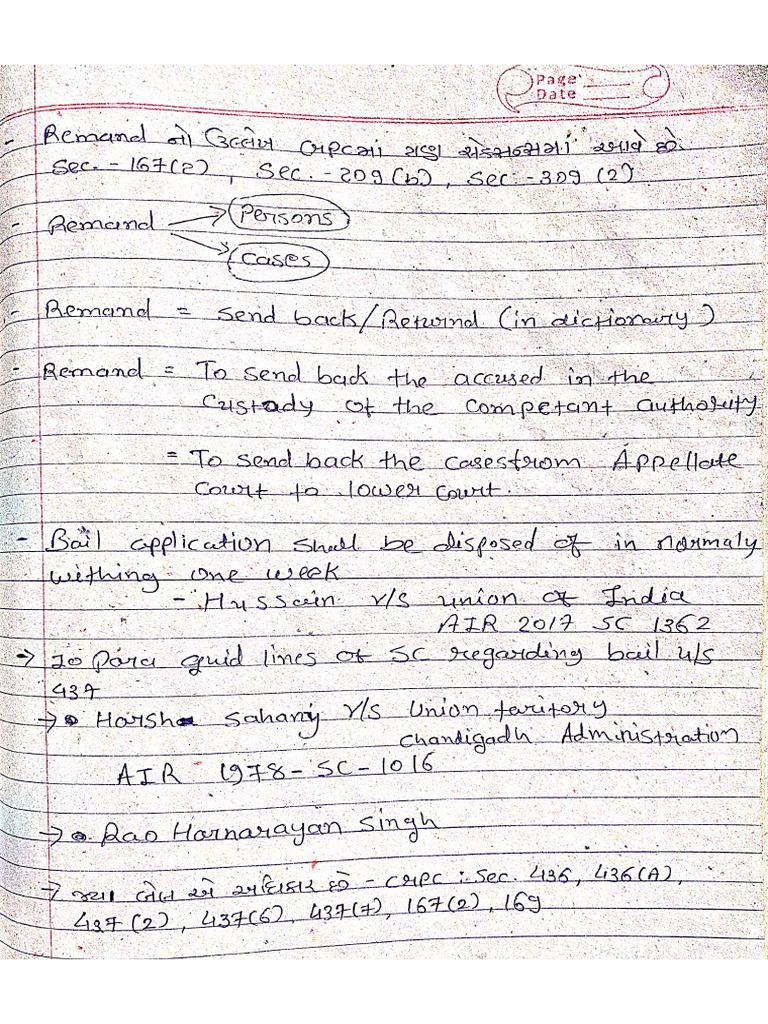 Page
Date
- Remand નો ઉલ્લેખ CRPCમાં ત્રણ સેકસન્સમાં આવે છે.
Sec. - 167(2), Sec. - 209(b), Sec. - 309 (2)
- Remand → Persons
→ Cases
- Remand = Send back/Retund (in dictionary)
- Remand = To send back the accused in the
Custody of the Competant authority
= To send back the cases from Appellate
Court to lower Court.
- Bail application shall be disposed of in normaly
withing one week
- Hussain v/s union of India
AIR 2017 SC 1362
→ 20 Para guid lines of SC regarding bail u/s
437
→ Harsh Sahany v/s Union taritory
Chandigadh Administration
AIR - 1978 - SC - 1016
→ Rao Harnarayan Singh
→ જ્યા બેલ એ અધિકાર છે - CRPC : Sec. 436, 436(A),
437(2), 437(6), 437(7), 167(2), 169